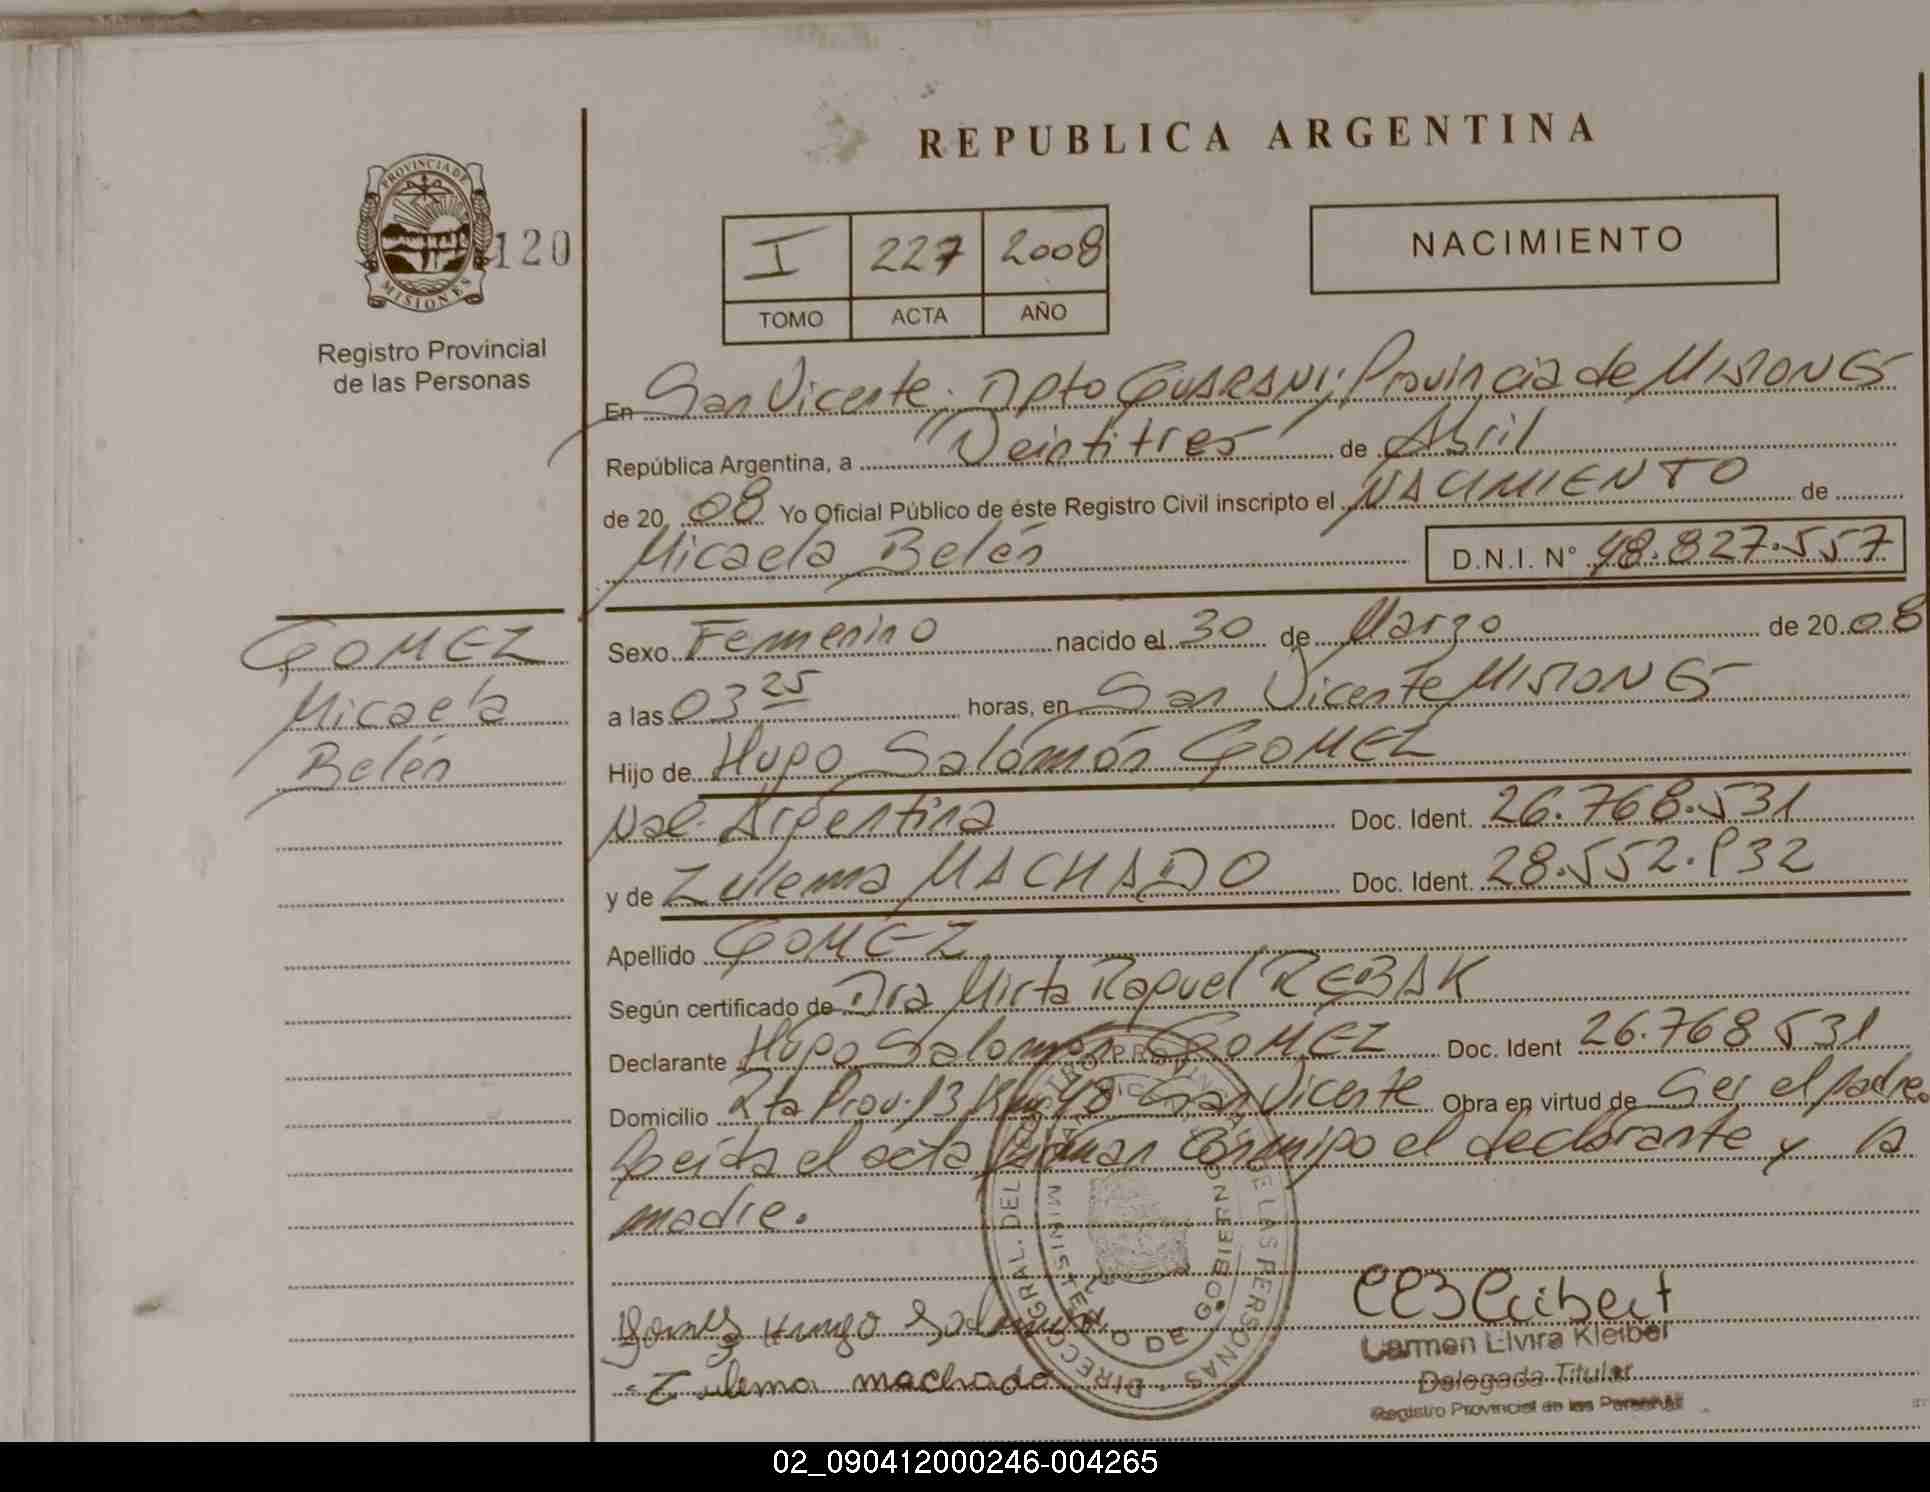 REPUBLICA ARGENTINA
PROVINCIA DE
MISIONES
120
Registro Provincial
de las Personas
I 227 2008
TOMO ACTA AÑO
NACIMIENTO
En San Vicente. Dpto GUARANI; Provincia de MISIONES
República Argentina, a Veintitres de Abril
de 20 08 Yo Oficial Público de éste Registro Civil inscripto el NACIMIENTO de
Micaela Belén D.N.I. N° 48.827.557
GOMEZ
Micaela
Belén
Sexo Femenino nacido el 30 de Marzo de 20 08
a las 03 25 horas, en San Vicente MISIONES
Hijo de Hugo Salomón GOMEZ
Nac. Argentina Doc. Ident. 26.768.531
y de Zulema MACHADO Doc. Ident. 28.552.932
Apellido GOMEZ
Según certificado de Dra Mirta Raquel REBAK
Declarante Hugo Salomón GOMEZ Doc. Ident 26.768 531
Domicilio Rta Prov. 13 San Vicente Obra en virtud de Ser el padre.
Leida el acta firman conmigo el declarante y la
madre.
DIREC. GRAL. DEL REGISTRO PROVINCIAL DE LAS PERSONAS
MINISTERIO DE GOBIERNO
Gomez Hugo Salomon
Zulema machado
Carmen Elvira Kleibert
Delegada Titular
Registro Provincial de las Personas
02_090412000246-004265